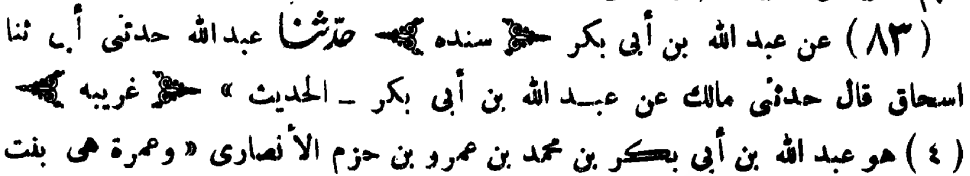 (٨٣) عن عبد الله بن أبى بكر ﴿ سنده ﴾ حدّثنا عبد الله حدثنى أبى ثنا
اسحاق قال حدثنى مالك عن عبد الله بن أبى بكر ـ الحديث » ﴿ غريبه ﴾
(٤) هو عبد الله بن أبي بكر بن محمد بن عمرو بن حزم الأنصارى «وعمرة هى بنت